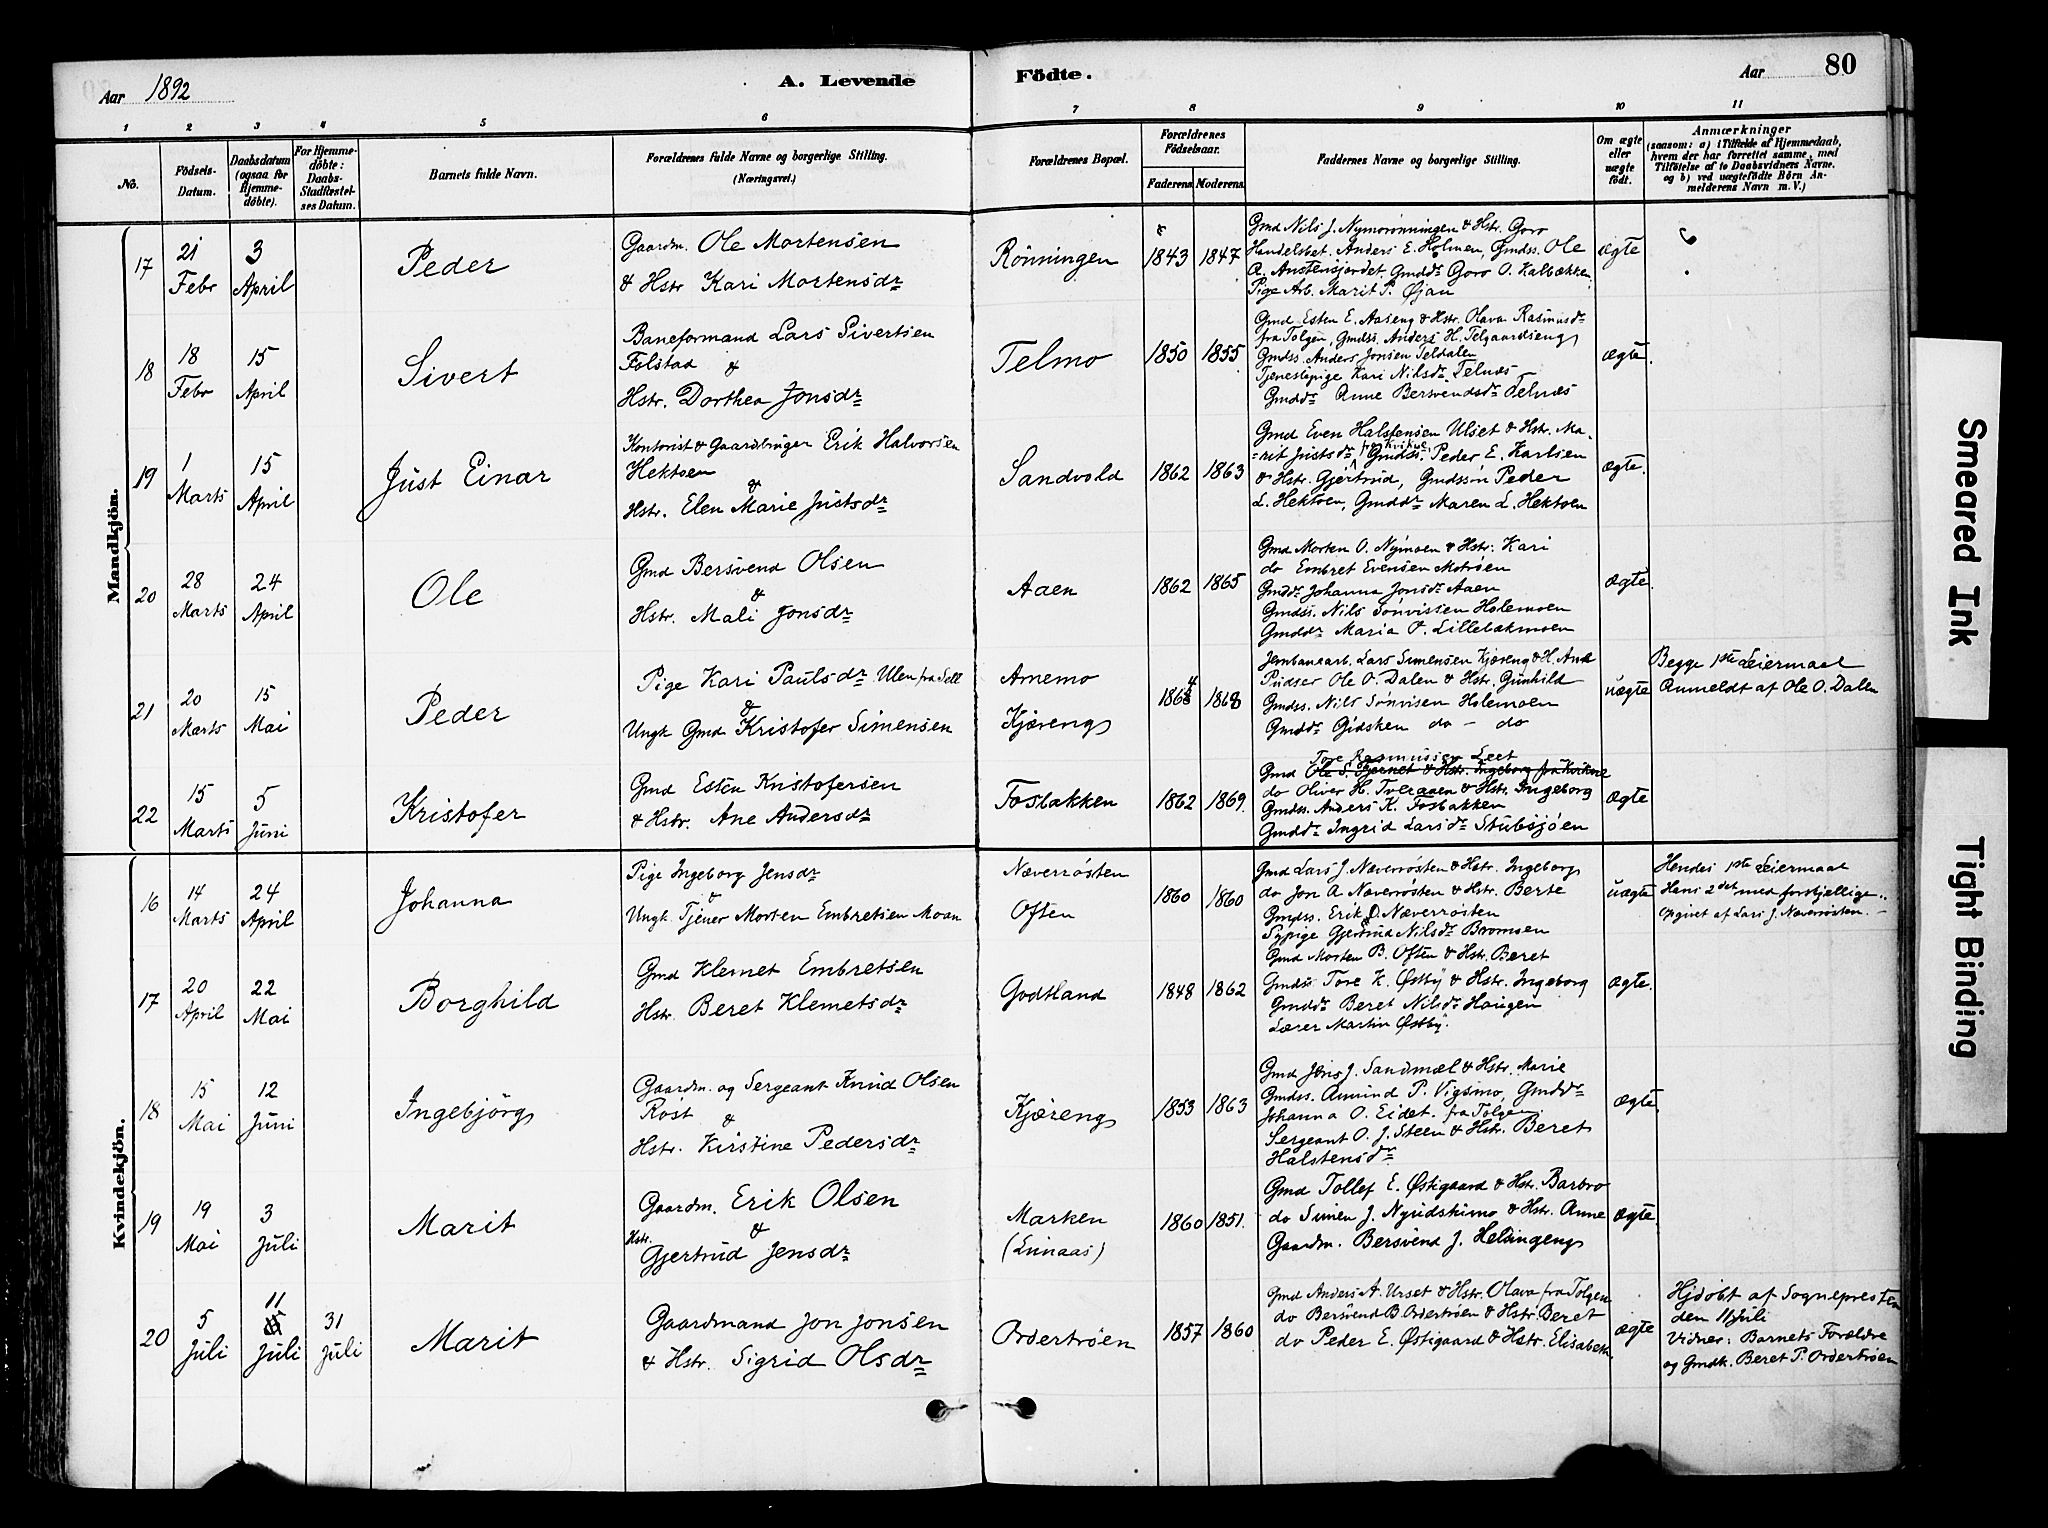 Aar 1892
A. Levende
Födte.
Aar
80
1 2 3 4 5 6 7 8 9 10 11
No.
Födsels-Datum.
Daabsdatum (ogsaa for Hjemme-döbte).
For Hjemme-döbte: Daabs-Stadfæstel-ses Datum.
Barnets fulde Navn.
Forældrenes fulde Navne og borgerlige Stilling.
(Næringsvei.)
Forældrenes Bopæl.
Forældrenes Födselsaar.
Faderens Moderens
Faddernes Navne og borgerlige Stilling.
Om ægte eller uægte födt.
Anmærkninger
(saasom: a) i Tilfælde af Hjemmedaab,
hvem der har forrettet samme, med
Tilföielse af to Daabsvidners Navne.
og b) ved uægtefödte Börn An-
melderens Navn m. V.)
Mandkjön.
17
21 Febr
3 April
Peder
Gaardm. Ole Mortensen
& Hstr Kari Mortensdr
Rönningen
1843 1847
Gmd Nils J. Nymorönningen & Hstr. Goro
Handelsbet. Anders E. Holmen, Gmdss. Ole
A. Austensjordet. Gmddr Goro O. Kalbækken
Pige Arb. Marit P. Øjan
ægte
18
18 Febr
15 April
Sivert
Baneformand Lars Sivertsen
Folstad &
Hstr. Dorthea Jonsdr
Telmo
1850 1855
Gmd Esten E. Aaseng & Hstr. Olava Rasmusdr
fra Tolgen, Gmdss. Anders H. Telgaardseng
Gmdss. Anders Jonsen Teldalen
Tjenestepige Kari Nilsdr Telnæs
Gmddr Anne Bersvendsdr Telnæs
ægte.
19
1 Marts
15 April
Just Einar
Kontorist & Gaardbruger Erik Halvorsen
Hektoen
&
Hstr. Elen Marie Justsdr
Sandvold
1862 1863
Gmd Even Halstensen Ulset & Hstr. Ma-
rit Justsdr fra Kvikne Gmdss. Peder E. Karlsen
& Hstr. Gjertrud, Gmdssön Peder
L. Hektoen, Gmddr Maren L. Hektoen
ægte.
20
28 Marts
24 April
Ole
Gmd Bersvend Olsen
&
Hstr. Mali Jonsdr
Aaen
1862 1865
Gmd Morten O. Nymoen & Hstr. Kari
do Embret Evensen Motröen
Gmddr Johanna Jonsdr Aaen
Gmdss. Nils Sönvissen Holemoen
Gmddr Maria O. Lillebakmoen
ægte.
21
20 Marts
15 Mai
Peder
Pige Kari Paulsdr Ulen fra Sell
&
Ungk Gmd Kristofer Simensen
Arnemo
Kjæreng
1864 1868
Jernbanearb. Lars Simensen Kjæreng & H. Ane
Pudser Ole O. Dalen & Hstr. Gunhild
Gmdss. Nils Sönvisen Holemoen
Gmddr Gidsken do - do
uægte
Begge 1ste Leiermaal
Anmeldt af Ole O. Dalen
22
15 Marts
5 Juni
Kristofer
Gmd Esten Kristofersen
& Hstr. Ane Andersdr
Fosbakken
1862 1869.
Tore Rasmussen Leet
Gmd Ole S. Hjernet & Hstr. Ingeborg fra Kvikne
do Oliver H. Tveraaen & Hstr. Ingeborg
Gmdss. Anders K. Fosbakken
Gmddr Ingrid Larsdr Stubsjöen
ægte
Kvindekjön.
16
14 Marts
24 April
Johanna
Pige Ingeborg Jensdr
&
Ungk Tjener Morten Embretsen Moan
Næverrösten
Often
1860 1860
Gmd Lars J. Næverrösten & Hstr. Ingeborg
do Jon A Næverrösten & Hstr. Berte
Gmdss. Erik O Næverrösten
Sypige Gjertrud Nilsdr Bromsen
Gmd Morten B. Often & Hstr. Beret
uægte
Hendes 1ste Leiermaal
Hans 2det med forskjellige.
Opgivet af Lars J. Næverrösten.
17
20 April
22 Mai
Borghild
Gmd Klemet Embretsen
Hstr. Beret Klemetsdr
Godtland
1848 1862
Gmdss Tore K. Østby & Hstr. Ingeborg
Gmddr Beret Nilsdr Haugen
Lærer Martin Østby.
ægte.
18
15 Mai
12 Juni
Ingebjörg
Gaardm. og Sergeant Knud Olsen
Röst
&
Hstr. Kirstine Pedersdr
Kjæreng
1853 1863
Gmd Jens J. Sandmæl & Hstr. Marie
Gmdss. Amund P. Vigsmo, Gmddr
Johanna O. Eidet. fra Tolgen.
Sergeant O. J. Steen & Hstr. Beret
Halstensdr
ægte.
19
19 Mai
3 Juli
Marit
Gaardm. Erik Olsen
&
Hstr. Gjertrud Jensdr
Marken
(Lunaas)
1860 1851.
Gmd Tollef E. Østigaard & Hstr. Barbro
do Simen J. Nyridskimo & Hstr. Anne
Gaardm. Bersvend J. Helsingeng
ægte.
20
5 Juli
11 Juli
31 Juli
Marit
Gaardmand Jon Jonsen
& Hstr. Sigrid Olsdr
Ordertröen
1857 1860
Gmd Anders A. Urset & Hstr. Olava fra Tolgen
do Bersvend B Ordertröen & Hstr. Beret
do Peder E. Østigaard & Hstr. Elisabeth
ægte
Hjdöbt af Sognepresten
den 11 Juli
Vidner: Barnets Forældre
og Gmdk. Beret P. Ordertröen
Smeared Ink
Tight Binding